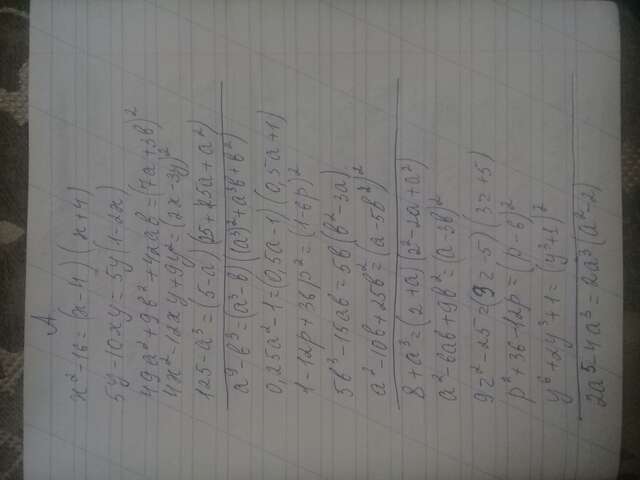 A
x²-16=(x-4)(x+4)
5y-10xy=5y(1-2x)
49a²+9b²+42ab=(7a+3b)²
4x²-12xy+9y²=(2x-3y)²
125-a³=(5-a)(25+25a+a²)
a⁹-b³=(a³-b)(a³)²+a³b+b²)
0,25a²-1=(0,5a-1)(0,5a+1)
1-12p+36p²=(1-6p)²
5b³-15ab=5b(b²-3a)
a²-10b+25b²=(a-5b²)²
8+a³=(2+a)(2²-2a+a²)
a²-6ab+9b²=(a-3b)²
9z²-25=(3z-5)(3z+5)
p²+36-12p=(p-6)²
y⁶+2y³+1=(y³+1)²
2a⁵-4a³=2a³(a²-2)